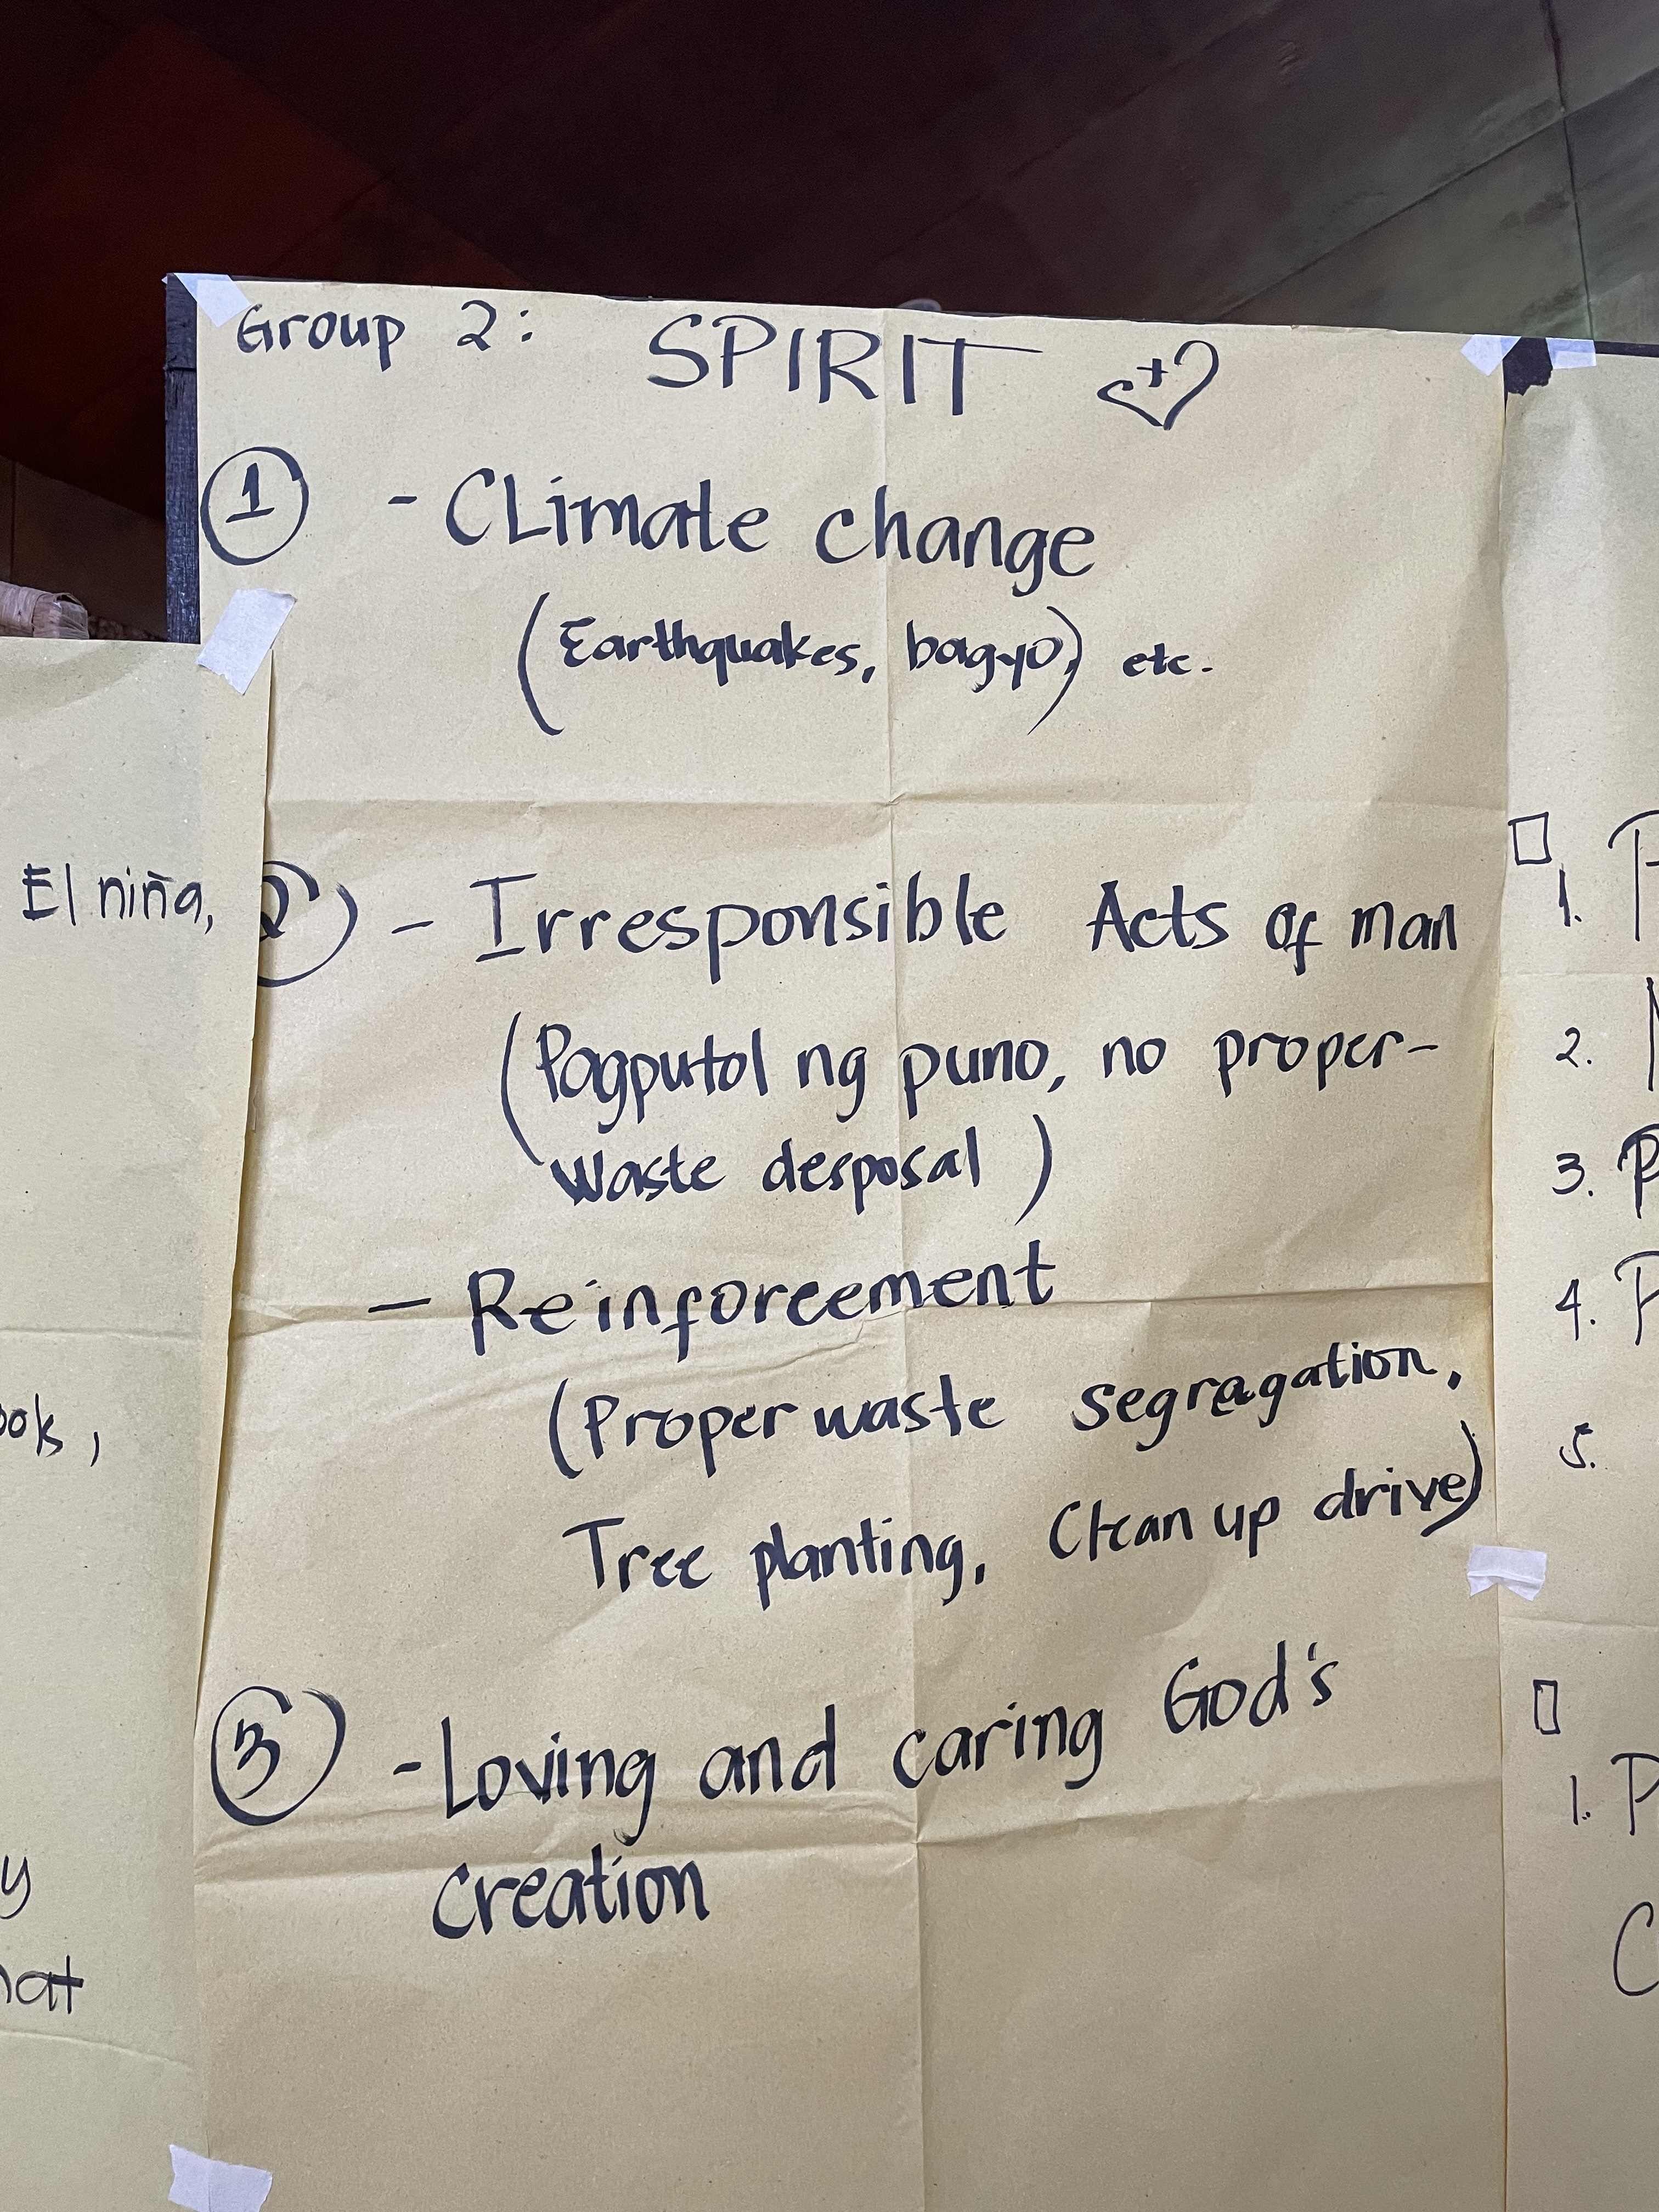 Group 2: SPIRIT
1 - CLimate change
(Earthquakes, bagyo,) etc.
2 - Irresponsible Acts of man
(Pagputol ng puno, no proper-
waste desposal)
- Reinforcement
(Proper waste segragation,
Tree planting, Clean up drive)
3 - Loving and caring God's
creation
El niña,
ook,
y
hat
1. P
2.
3. P
4. P
5.
1. P
C